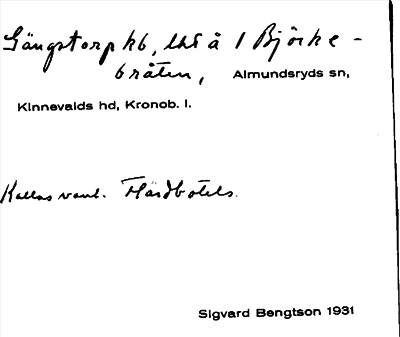 Gängstorp kb, lht å 1 Björke-
bråten, Almundsryds sn,
Kinnevalds hd, Kronob. l.
Kallas vanl. Flärdbotels.
Sigvard Bengtson 1931